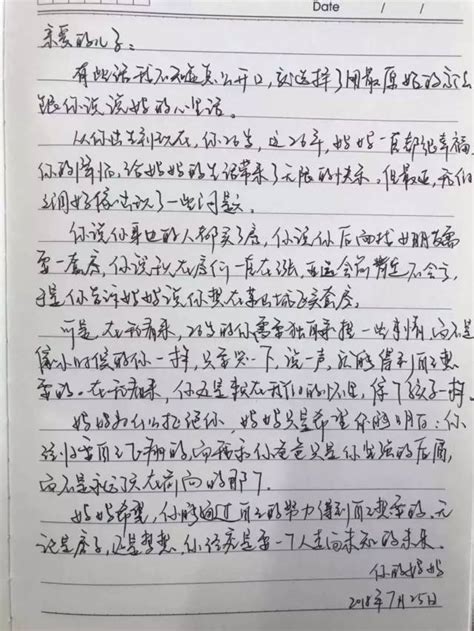 Date / /
亲爱的儿子：
有些话我不知道怎么开口，就选择了用最原始的方法
跟你说说妈的心里话。
从你出生到现在，你26岁，这26年，妈妈一直都很幸福，
你的降临，给妈妈的生活带来了无限的快乐。但最近，我们
之间好像出现了一些问题。
你说你身边的人都买了房，你说你后面找女朋友需
要一套房，你说现在房价一直在涨，再过会肯定不合适，
于是你告诉妈妈说你想在买套房。
可是，在我看来，26岁的你需要独自承担一些事情，而不是
像小时候的你一样，只要哭一下，说一声，就能得到自己想
要的。在我看来，你还是躲在我们的怀里，像个孩子一样。
妈妈为什么拒绝你，妈妈只是希望你能明白：你
该归要自己飞翔的，而我和你爸爸只是你坚强的后盾，
而不是永远顶在前面的那个。
妈妈希望，你能通过自己的努力得到自己想要的，无
论是房子，还是梦想，你终究是要一个人走向未知的未来。
你的妈妈
2018年7月25日